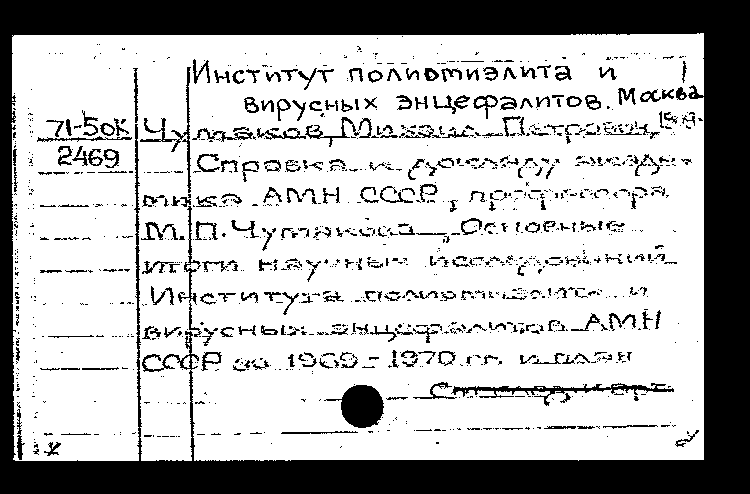 Институт полиомиэлита и
вирусных энцефалитов. Москва
71-50К Чумаков, Михаил Петрович,
2469 Справка к докладу акаде-
мика АМН СССР, профессора
М. П. Чумакова „Основные
итоги научных исследований
Института полиомиэлита и
вирусных энцефалитов АМН
СССР за 1969-1970 гг. и план